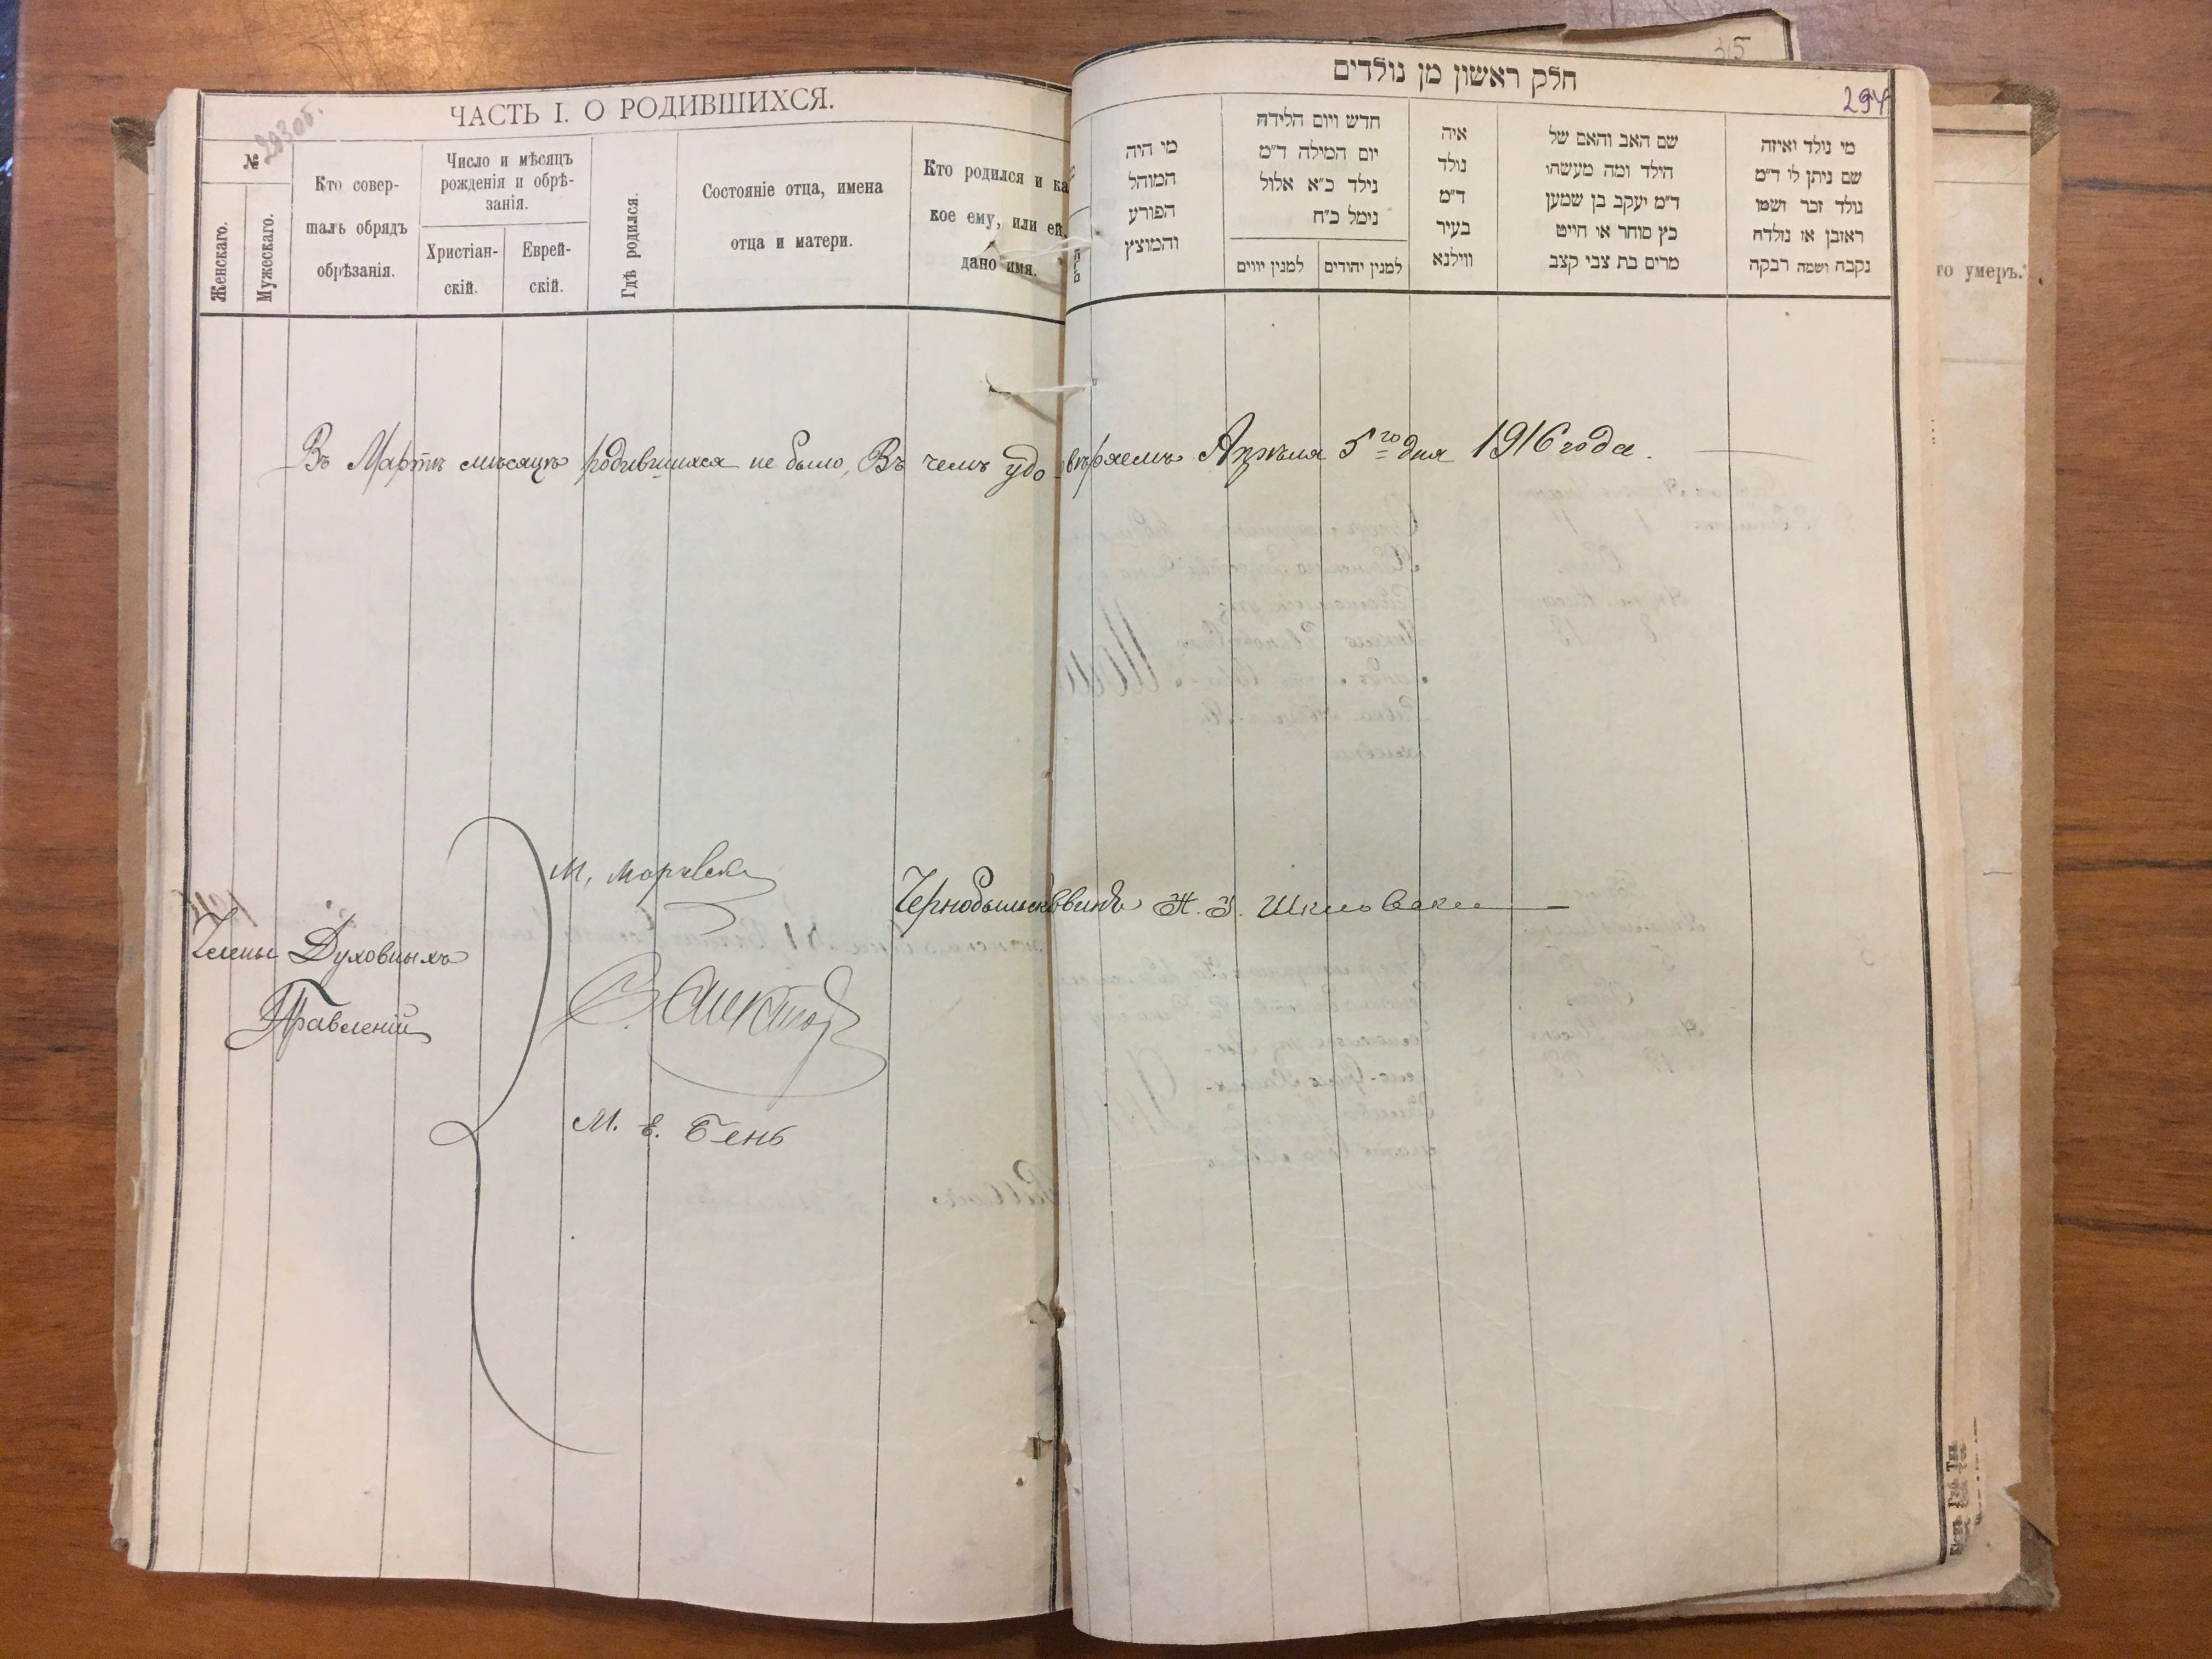 ЧАСТЬ I. О РОДИВШИХСЯ.
293 об.
№
Женскаго.
Мужескаго.
Кто совер-
шалъ обрядъ
обрѣзанія.
Число и мѣсяцъ
рожденія и обрѣ-
занія.
Христіан-
скій.
Еврей-
скій.
Гдѣ родился.
Состояніе отца, имена
отца и матери.
Кто родился и ка
кое ему, или ей,
дано имя.
315
חלק ראשון מן נולדים
294
מי נולד ואיזה
שם ניתן לו ד״מ
נולד זכר ושמו
ראובן או נולדה
נקבה ושמה רבקה
שם האב והאם של
הילד ומה מעשהו
ד״מ יעקב בן שמעון
כץ סוחר או חייט
מרים בת צבי קצב
איה
נולד
ד״מ
בעיר
ווילנא
חדש ויום הלידה
יום המילה ד״מ
נילד כ״א אלול
נימל כ״ח
למנין יהודים
למנין יווים
מי היה
המוהל
הפורע
והמוצץ
то умеръ.
Въ Мартѣ мѣсяцѣ родившихся не было, Въ чемъ удо-вѣряемъ Апрѣля 5го дня 1916 года.
Члены Духовныхъ
Правленій
М.
М. Е. Бень
Шкловски